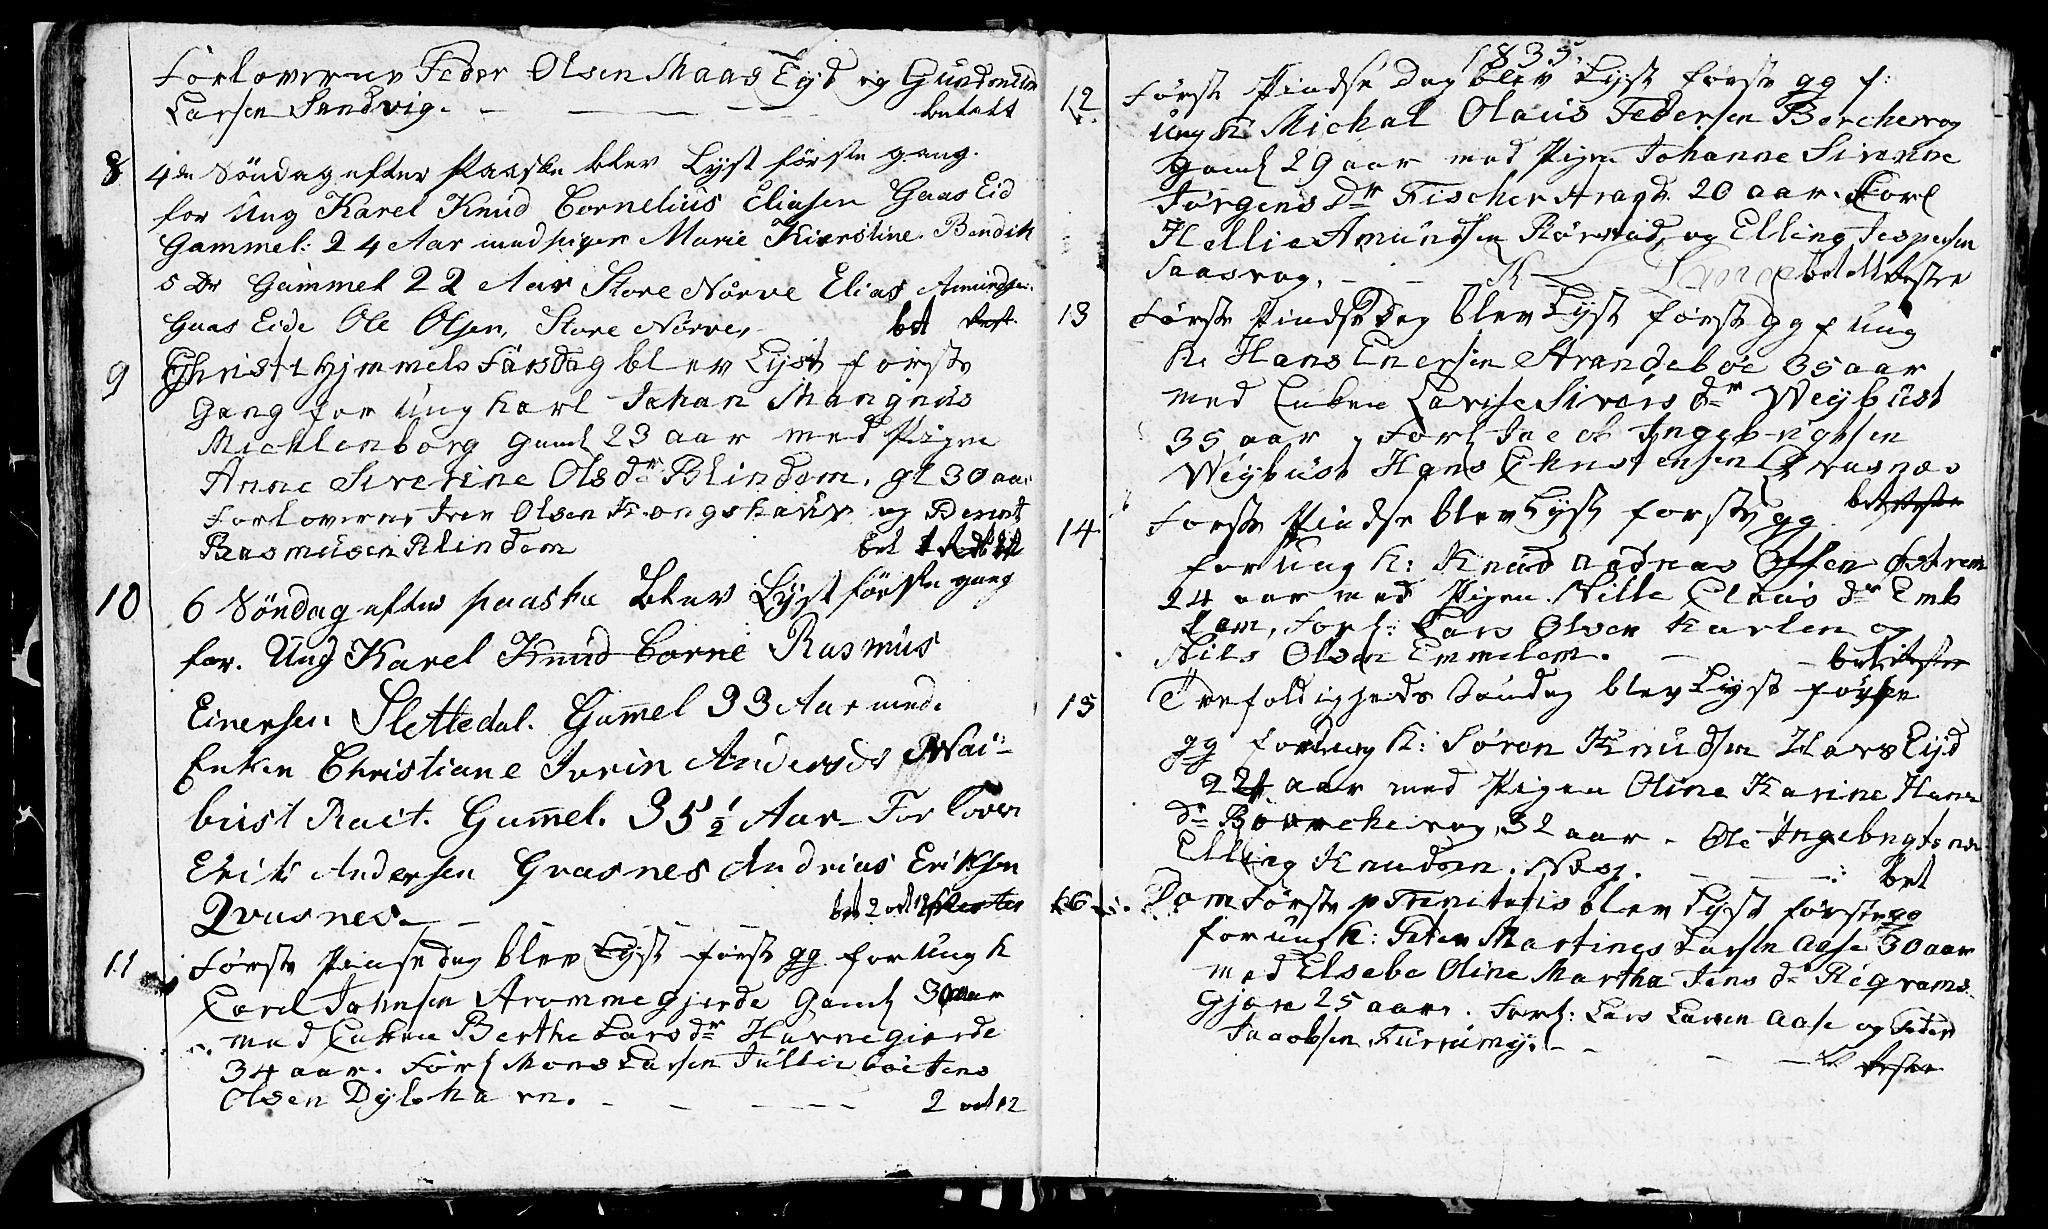 Forloverne Peder Olsen Maas Eyd og Gundmun
Larsen Sandvig. betalt
8 4de Söndag efter Paaske blev Lyst förste gang.
for Ung Karel Knud Cornelius Eliasen Gaas Eid
Gammel: 24 Aar med pigen Marie Kierstine Bendik
s Dr Gammel 22 Aar Store Nörve Elias Amundsen
Gaas Eide Ole Olsen, Store Nörve, bet
9 Christi Hjmmels Farsdag blev Lyst förste
Gang for Ung Karl Johan Mangnus
Micklenborg Gaml 23 aar med Pigen
Anne Siverine Olsdr Blindem, gl 30 aar
Forloverne Iver Olsen Kongshaug og Bernt
Rasmusen Blindem bet
10 6 Söndag efter paaske blev Lyst förske gang
for. Ung Karel Knud Corne Rasmus
Einersen Slettedal. Gam̄el 33 Aar med.
Enken Christiane Jvrin Andersdr Wai-
bust Rait. Gam̄el. 35½ Aar For lover
Erik Andersen Gvasnes Andrias Eriksen
Qvasnes. bet 2 ort 12
11 Förste Pinse dag blev Lyst först gg for Ung k
Carel Johnsen Arommegjerde Gaml 30 aar
med Enken Berthe Larsdr Havnegierde
34 aar. Forl Mons Larsen Tullieböe Jens
Olsen Dybhavn. 2 ort 12
1835.
12 Förste Pindse Dag blev Lyst förste gg f.
Ung K. Michal Olaus Pedersen Borchevog
gaml 29 aar med Pigen Johanne Sirenne
Jörgens Dr Fischer Aragt. 20 aar. Forl
Hellie Amundsen Rørstad, og Elling Jespersen
Saasvog, betalt
13 Förste Pindse Dag blev Lyst förste gg f Ung
k. Hans Enersen Strandeböe 35 aar
med Enken Lavise Sivers dr Weybust
35 aar, Forl Jacob Ingebrigtsen
Weybust Hans Christensen Qvasnæs
14 Forste Pindse blev Lyst forste gg bet
for Ung k: Knud Andreas Offen Østrem
24 aar med Pigen Nille Claus dr Emb
lem, Forl: Lars Olsen Karlen og
Nils Olsen Emmelem. bet
15 Trefoldigheds Söndag blev Lyst förse
gg for Ung k: Sören Knudsen Hars Eyd
22 aar med Pigen Oline Karine Hans
dr Böurchevog, 32 aar. Ole Ingebrigtsen
Elling Knudsen Næsj. bet
16 Dom Förste p Trenitatis blev Lyst förste gg
for Ung K: Peter Martines Larsen Aase 30 aar
med Elsebe Oline Martha Jens dr Regrams
Gjære 25 aar. Forl: Lars Larsen Aase og Peder
Jacobsen Furrumy.